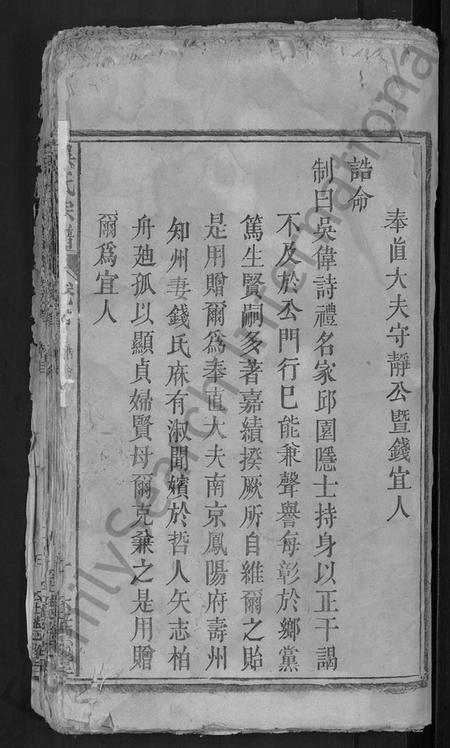 奉直大夫守靜公暨錢宜人
誥命
制曰吳偉詩禮名家邱園隱士持身以正干謁
不及於公門行已能兼聲譽每彰於鄉黨
篤生賢嗣多著嘉績揆厥所自維爾之貽
是用贈爾為奉直大夫南京鳳陽府壽州
知州妻錢氏庥有淑聞嬪於哲人矢志柏
舟廸孤以顯貞婦賢母爾克兼之是用贈
爾為宜人
吳氏宗譜
FamilySearch International